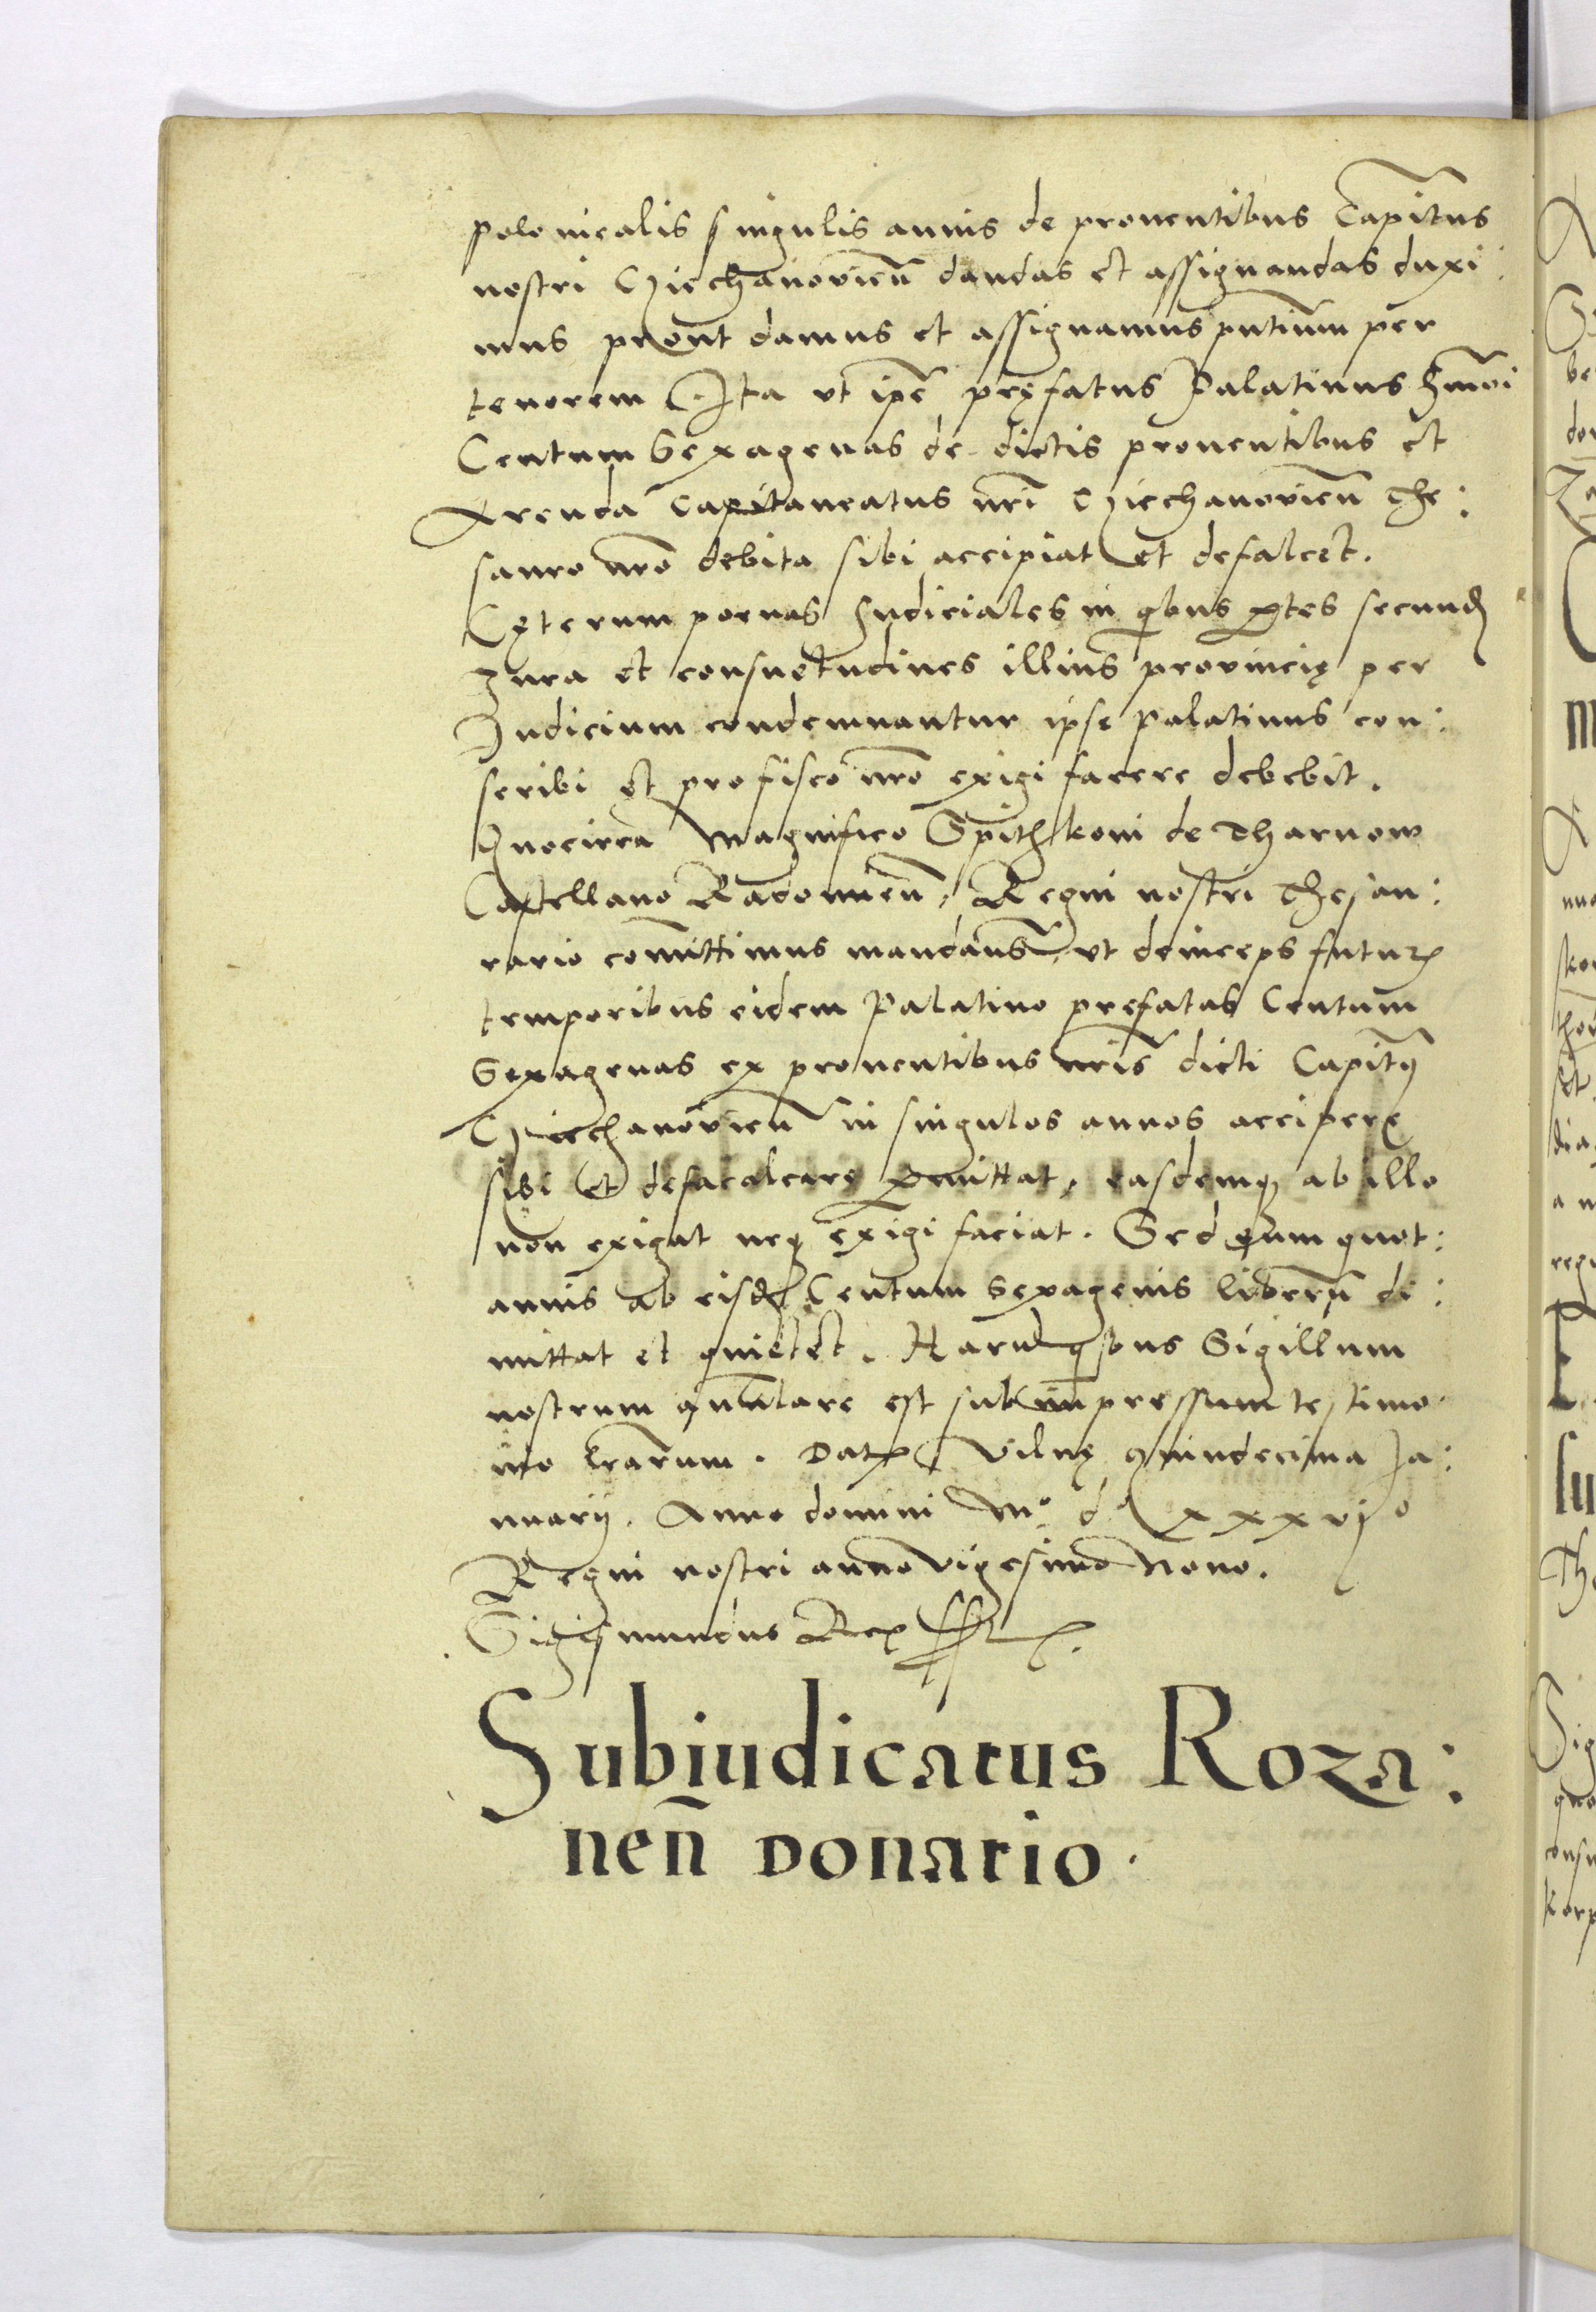 polonicalis singulis annis de prouentibus Capitus
nostri Cziechanovien̄ dandas et assignandas duxi:
mus prout damus et assignamus pntium per
tenorem Ita vt ipē pręfatus Palatinus hmōi
Centum Sexagenas de dictis prouentibus et
Arenda Capitaneatus nr̄i Cziechanovien̄ The:
sauro nrō debita sibi accipiat et defalcet.
Cęterum poenas Iudiciales in qbus ptes secund
Iura et consuetudines illius provincię per
Iudicium condemnantur ipse palatinus con:
scribi et pro fisco nrō exigi facere debebit.
Quocirca Magnifico Spithkoni de Tharnow
Castellano Radomien̄, Regni nostri Thesau:
rario com̄ittimus mandan̄s vt deinceps futur
temporibus eidem Palatino prefatas Centum
Sexagenas ex prouentibus nr̄is dicti Capitq
Cziechanovien̄ in singulos annos accipere
sibi et defacalcarę pmittat, easdemq ab illo
non exigat neq exigi faciat. Sed eum quot:
annis ab eisd Centum Sexagenis liberū di:
mittat et quietet. Haru qbus Sigillum
nostrum ānulare est subimpressum testimo
nio lrārum. Dat Vilnę quindecima Ja:
nuarij. Anno domini Mº dº xxxvjº
Regni nostri anno vigesimo Nono.
Sigismundus Rex sst.
Subiudicatus Roza:
nen̄ Donatio.